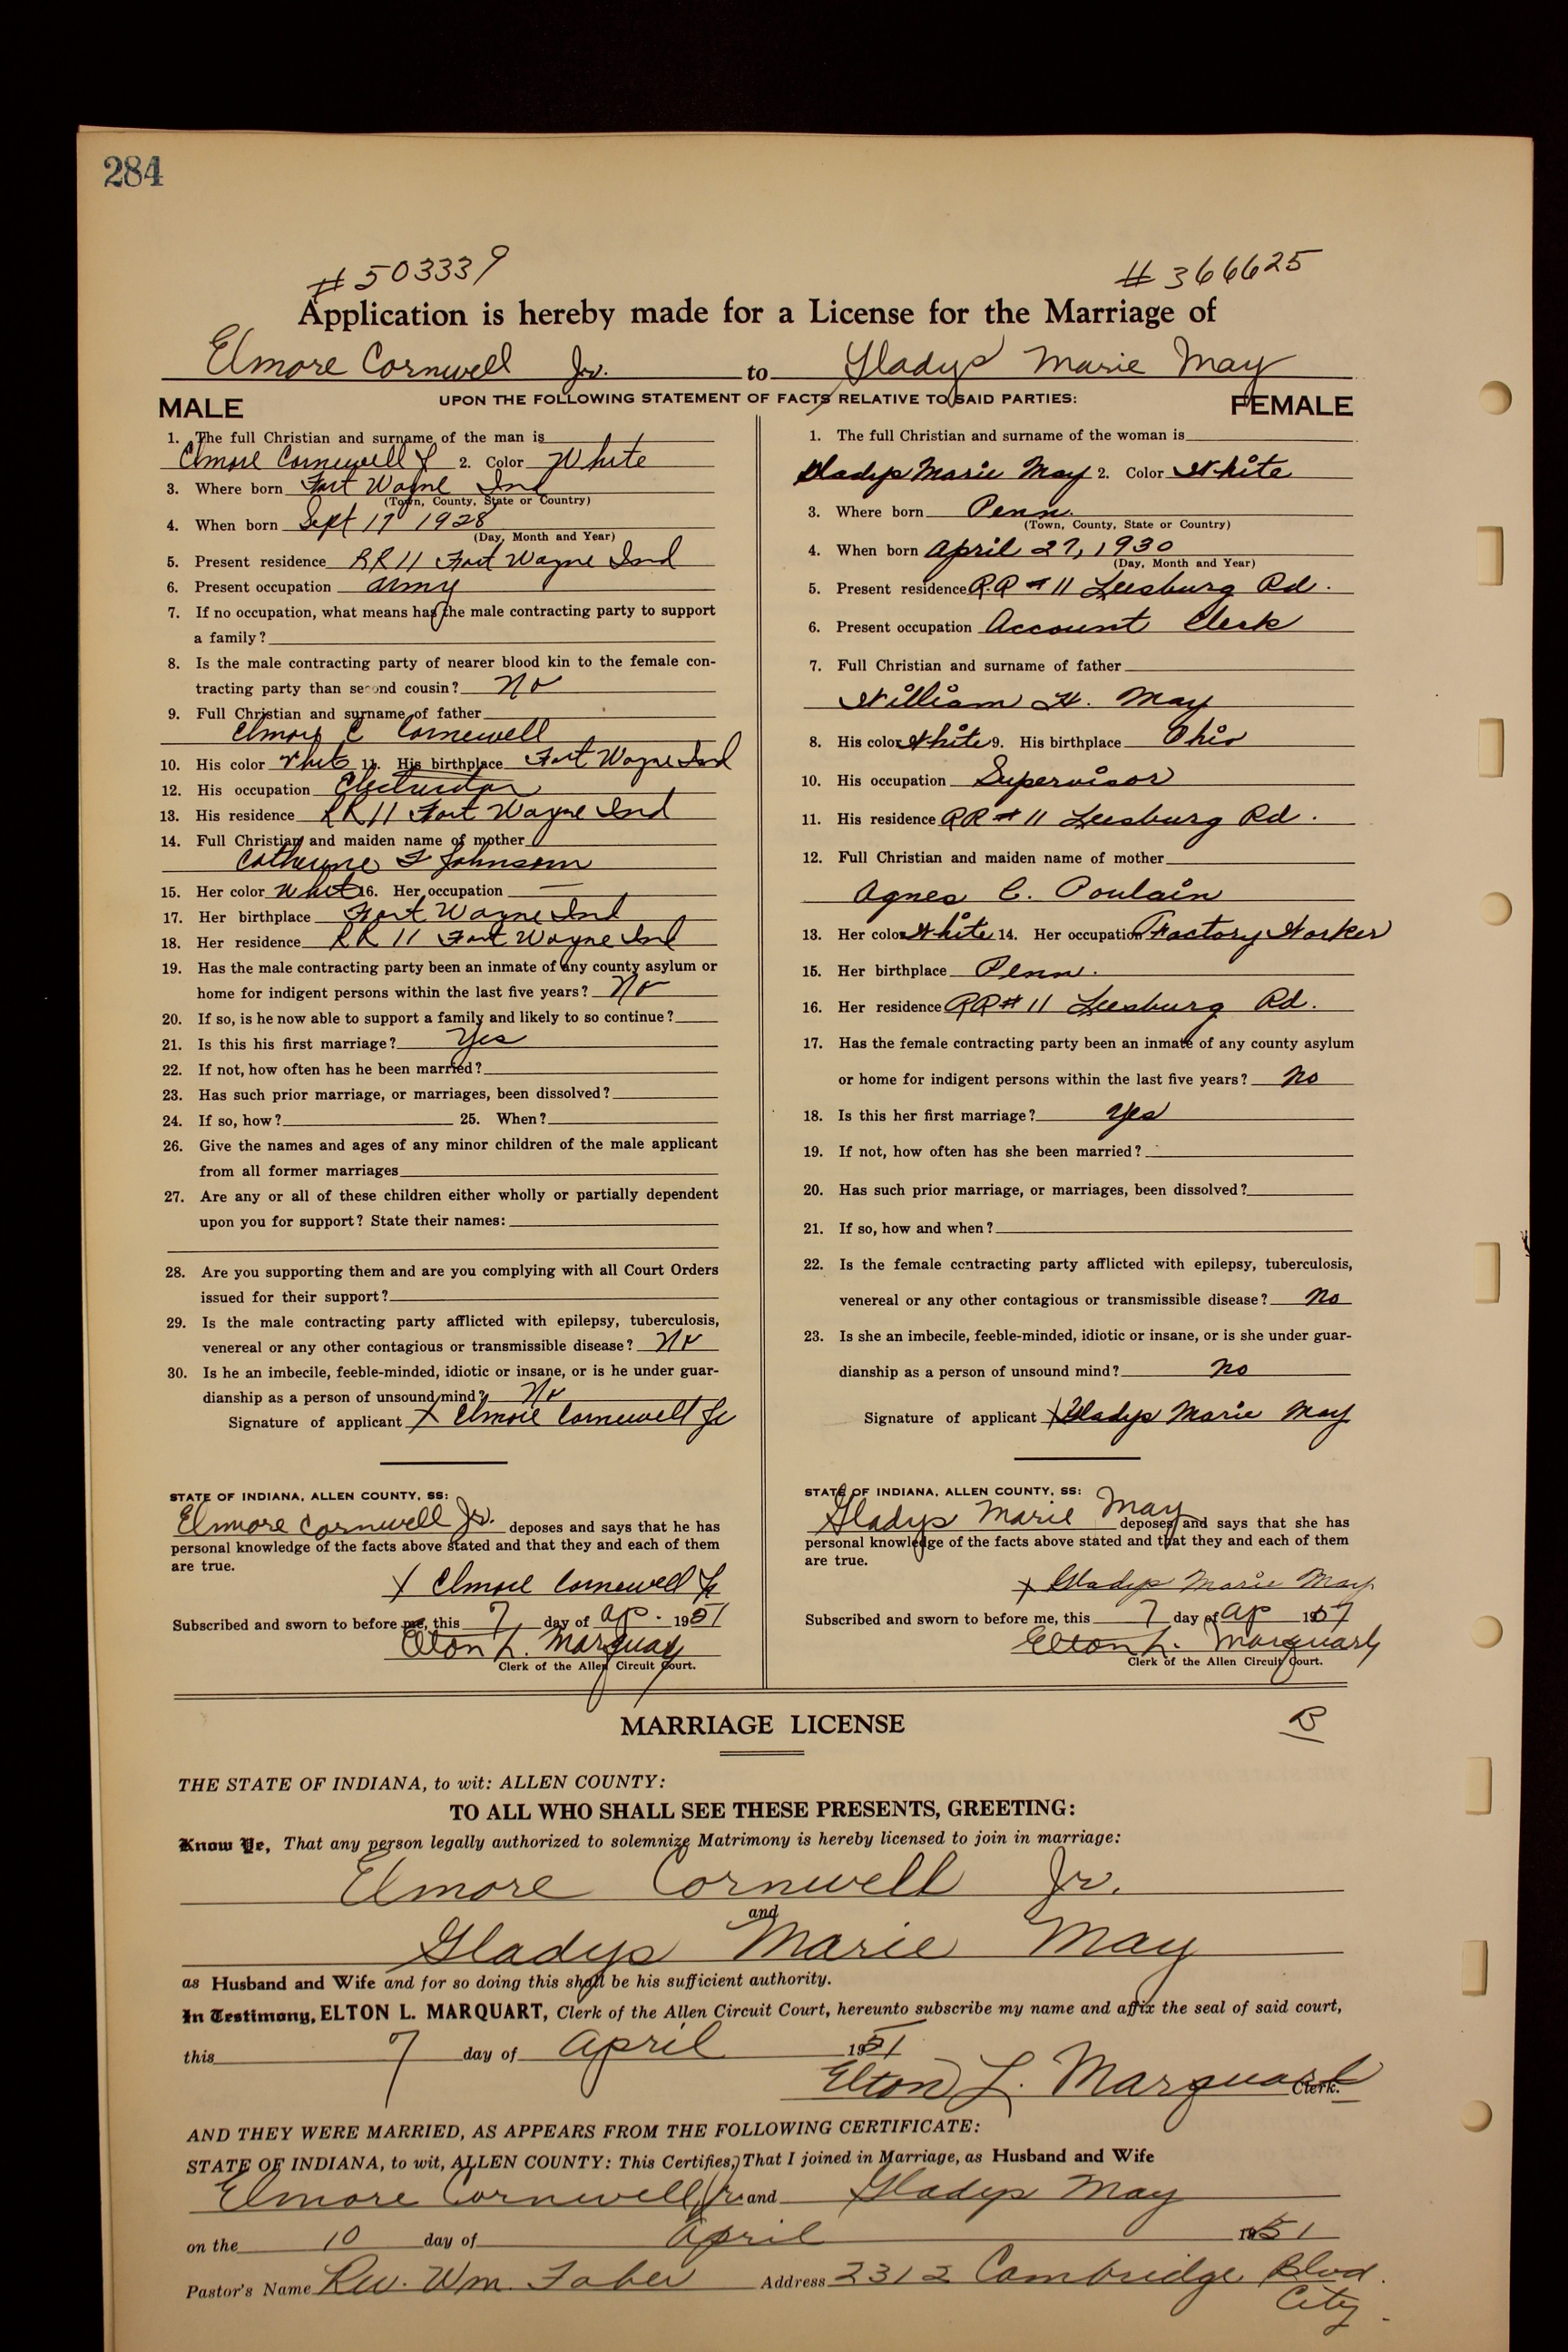 284
#503339 #366625
Application is hereby made for a License for the Marriage of
Elmore Cornwell Jr. to Gladys Marie May
UPON THE FOLLOWING STATEMENT OF FACTS RELATIVE TO SAID PARTIES:
MALE
1. The full Christian and surname of the man is
Elmore Cornewell Jr 2. Color White
3. Where born Fort Wayne Ind
(Town, County, State or Country)
4. When born Sept 17 1928
(Day, Month and Year)
5. Present residence RR 11 Fort Wayne Ind
6. Present occupation army
7. If no occupation, what means has the male contracting party to support
a family?
8. Is the male contracting party of nearer blood kin to the female con-
tracting party than second cousin? No
9. Full Christian and surname of father
Elmore C Cornewell
10. His color White 11. His birthplace Fort Wayne Ind
12. His occupation
13. His residence RR 11 Fort Wayne Ind
14. Full Christian and maiden name of mother
Catherine F Johnson
15. Her color White 16. Her occupation —
17. Her birthplace Fort Wayne Ind
18. Her residence RR 11 Fort Wayne Ind
19. Has the male contracting party been an inmate of any county asylum or
home for indigent persons within the last five years? No
20. If so, is he now able to support a family and likely to so continue?
21. Is this his first marriage? Yes
22. If not, how often has he been married?
23. Has such prior marriage, or marriages, been dissolved?
24. If so, how? 25. When?
26. Give the names and ages of any minor children of the male applicant
from all former marriages
27. Are any or all of these children either wholly or partially dependent
upon you for support? State their names:
28. Are you supporting them and are you complying with all Court Orders
issued for their support?
29. Is the male contracting party afflicted with epilepsy, tuberculosis,
venereal or any other contagious or transmissible disease? No
30. Is he an imbecile, feeble-minded, idiotic or insane, or is he under guar-
dianship as a person of unsound mind? No
Signature of applicant X Elmore Cornewell Jr
STATE OF INDIANA, ALLEN COUNTY, SS:
Elmore Cornwell Jr. deposes and says that he has
personal knowledge of the facts above stated and that they and each of them
are true.
X Elmore Cornewell Jr
Subscribed and sworn to before me, this 7 day of Ap. 1951
Elton L. Marquart
Clerk of the Allen Circuit Court.
FEMALE
1. The full Christian and surname of the woman is
Gladys Marie May 2. Color White
3. Where born Penn.
(Town, County, State or Country)
4. When born April 27, 1930
(Day, Month and Year)
5. Present residence R.R #11 Leesburg Rd.
6. Present occupation Account Clerk
7. Full Christian and surname of father
William H. May
8. His color White 9. His birthplace Ohio
10. His occupation Supervisor
11. His residence RR #11 Leesburg Rd.
12. Full Christian and maiden name of mother
Agnes C. Poulain
13. Her color White 14. Her occupation Factory Worker
15. Her birthplace Penn.
16. Her residence RR#11 Leesburg Rd.
17. Has the female contracting party been an inmate of any county asylum
or home for indigent persons within the last five years? no
18. Is this her first marriage? yes
19. If not, how often has she been married?
20. Has such prior marriage, or marriages, been dissolved?
21. If so, how and when?
22. Is the female contracting party afflicted with epilepsy, tuberculosis,
venereal or any other contagious or transmissible disease? no
23. Is she an imbecile, feeble-minded, idiotic or insane, or is she under guar-
dianship as a person of unsound mind? no
Signature of applicant X Gladys Marie May
STATE OF INDIANA, ALLEN COUNTY, SS:
Gladys Marie May deposes and says that she has
personal knowledge of the facts above stated and that they and each of them
are true.
X Gladys Marie May
Subscribed and sworn to before me, this 7 day of Ap 1951
Elton L. Marquart
Clerk of the Allen Circuit Court.
MARRIAGE LICENSE B
THE STATE OF INDIANA, to wit: ALLEN COUNTY:
TO ALL WHO SHALL SEE THESE PRESENTS, GREETING:
Know Ye, That any person legally authorized to solemnize Matrimony is hereby licensed to join in marriage:
Elmore Cornwell Jr.
and
Gladys Marie May
as Husband and Wife and for so doing this shall be his sufficient authority.
In Testimony, ELTON L. MARQUART, Clerk of the Allen Circuit Court, hereunto subscribe my name and affix the seal of said court,
this 7 day of April 1951
Elton L. Marquart Clerk.
AND THEY WERE MARRIED, AS APPEARS FROM THE FOLLOWING CERTIFICATE:
STATE OF INDIANA, to wit, ALLEN COUNTY: This Certifies, That I joined in Marriage, as Husband and Wife
Elmore Cornwell, Jr. and Gladys May
on the 10 day of April 1951
Pastor's Name Rev. Wm. Faber Address 2312 Cambridge Blvd.
City.